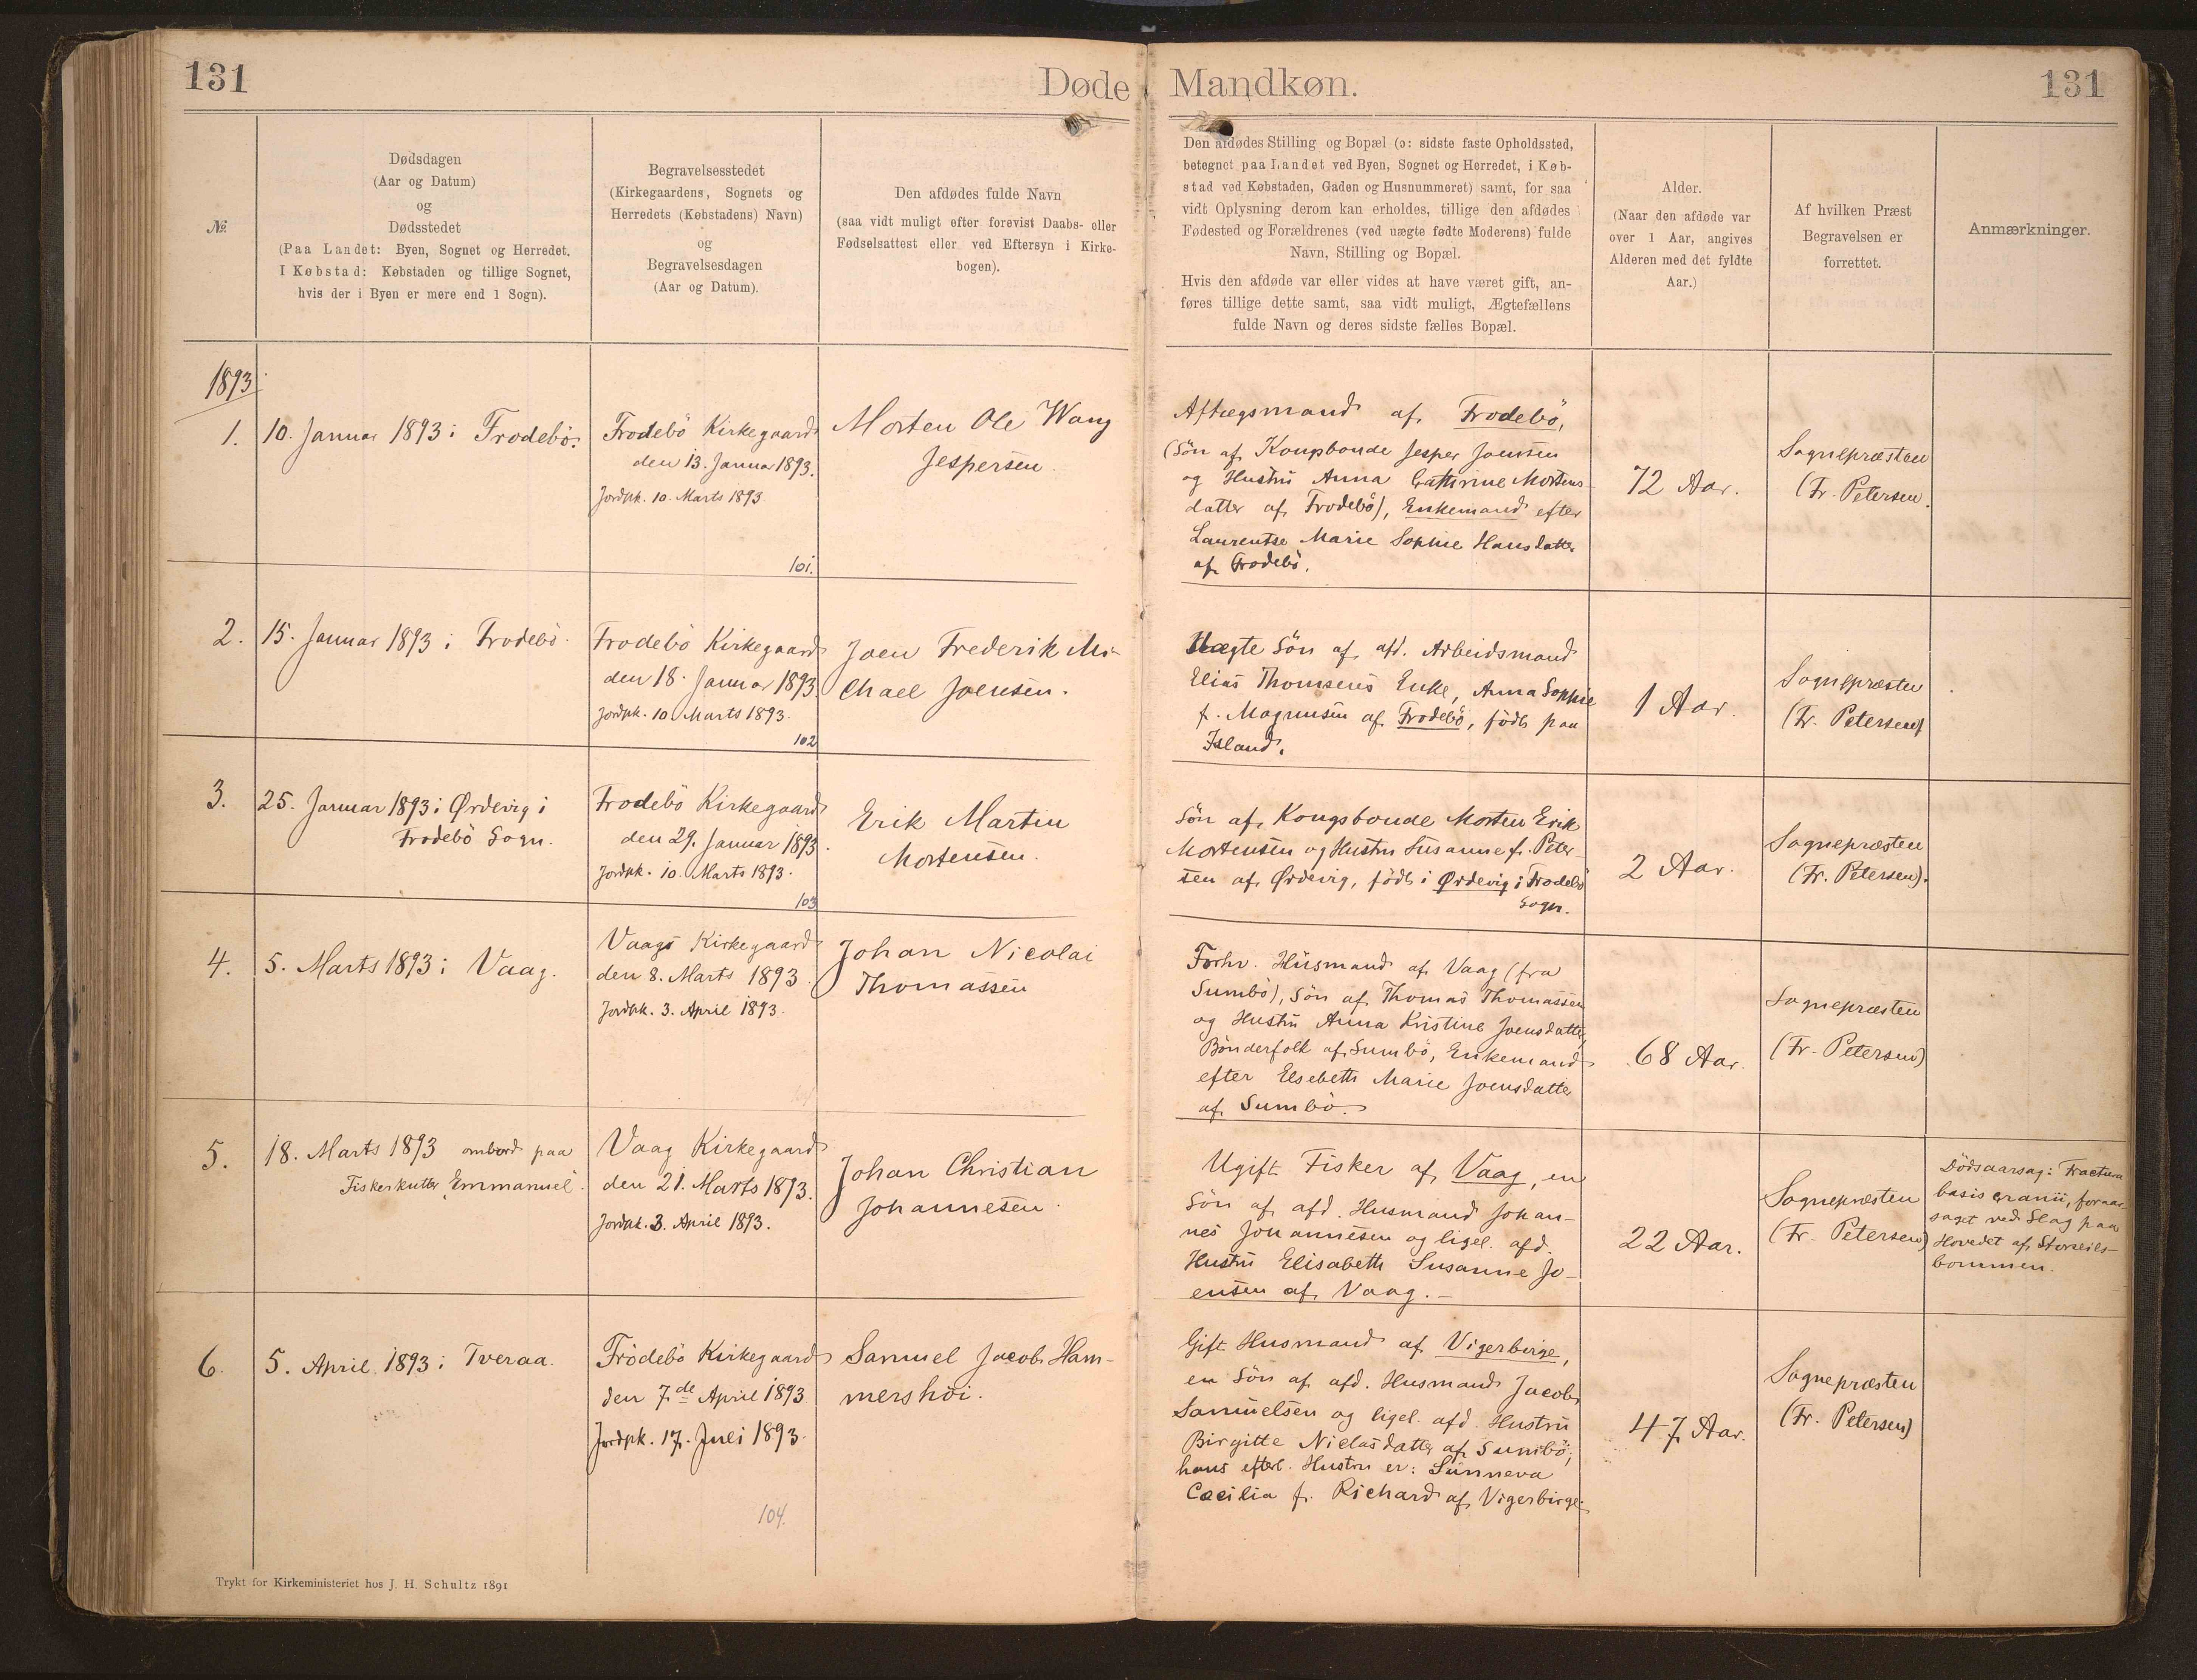 131
Døde Mandkøn.
131
№.
Dødsdagen
(Aar og Datum)
og
Dødsstedet
(Paa Landet: Byen, Sognet og Herredet.
I Købstad: Købstaden og tillige Sognet,
hvis der i Byen er mere end 1 Sogn).
Begravelsesstedet
(Kirkegaardens, Sognets og
Herredets (Købstadens) Navn)
og
Begravelsesdagen
(Aar og Datum).
Den afdødes fulde Navn
(saa vidt muligt efter forevist Daabs- eller
Fødselsattest eller ved Eftersyn i Kirke-
bogen).
Den afdødes Stilling og Bopæl (ɔ: sidste faste Opholdssted,
betegnet paa Landet ved Byen, Sognet og Herredet, i Køb-
stad ved Købstaden, Gaden og Husnummeret) samt, for saa
vidt Oplysning derom kan erholdes, tillige den afdødes
Fødested og Forældrenes (ved uægte fødte Moderens) fulde
Navn, Stilling og Bopæl.
Hvis den afdøde var eller vides at have været gift, an-
føres tillige dette samt, saa vidt muligt, Ægtefællens
fulde Navn og deres sidste fælles Bopæl.
Alder.
(Naar den afdøde var
over 1 Aar, angives
Alderen med det fyldte
Aar.)
Af hvilken Præst
Begravelsen er
forrettet.
Anmærkninger.
1893
1.
10. Januar 1893 i Frodebö.
Frodebö Kirkegaard
den 13. Januar 1893.
Jordpk. 10. Marts 1893.
101.
Morten Ole Wang
Jespersen.
Aftægsmand af Frodebö,
(Sön af Kongsbonde Jesper Joensen
og Hustru Anna Cathrine Mortens-
datter af Frodebö), Enkemand efter
Laurentse Marie Sophie Hansdatter
af Frodebö.
72 Aar.
Sognepræsten
(Fr. Petersen.
2.
15. Januar 1893 i Frodebö.
Frodebö Kirkegaard
den 18. Januar 1893
Jordpk. 10. Marts 1893.
102
Joen Frederik Mi-
chael Joensen.
Uægte Sön af afd. Arbeidsmand
Elias Thomsens Enke, Anna Sophie
f. Magnussen af Frodebö, födt paa
Island.
1 Aar.
Sognepræsten
(Fr. Petersen)
3.
25. Januar 1893 i Ørdevig i
Frodebö Sogn.
Frodebö Kirkegaard
den 29. Januar 1893.
Jordpk. 10. Marts 1893.
103
Erik Martin
Mortensen.
Sön af Kongsbonde Morten Erik
Mortensen og Hustru Susanne f. Peter-
sen af Ørdevig, födt i Ørdevig i Frodebö
Sogn.
2 Aar.
Sognepræsten
(Fr. Petersen).
4.
5. Marts 1893 i Vaag.
Vaags Kirkegaard
den 8. Marts 1893.
Jordpk. 3. April 1893.
Johan Nicolai
Thomassen
Forhv. Husmand af Vaag (fra
Sumbö), Sön af Thomas Thomassen
og Hustru Anna Kristine Joensdatter,
Bönderfolk af Sumbö, Enkemand
efter Elsebeth Marie Joensdatter
af Sumbö.
68 Aar.
Sognepræsten
(Fr. Petersen)
5.
18. Marts 1893 ombord paa
Fiskerkutter Emmanuel.
Vaag Kirkegaard
den 21. Marts 1893.
Jordpk. 3. April 1893.
Johan Christian
Johannesen.
Ugift Fisker af Vaag, en
Sön af afd. Husmand Johan-
nes Johannesen og ligel. afd.
Hustru Elisabeth Susanne Jo-
ensen af Vaag.
22 Aar.
Sognepræsten
(Fr. Petersen)
Dödsaarsag: Fractura
basis cranii, foraar-
saget ved Slag paa
Hovedet af Storseils-
bommen.
6.
5. April 1893 i Tveraa.
Frodebö Kirkegaard
den 7de April 1893
Jordpk. 17. Juli 1893.
104.
Samuel Jacob Ham-
mershöi.
Gift Husmand af Vigerbirge,
en Sön af afd. Husmand Jacob
Samuelsen og ligel. afd. Hustru
Birgitte Niclasdatter af Sumbö;
hans efterl. Hustru er: Sunneva
Cæcilia f. Richard af Vigerbirge.
47 Aar.
Sognepræsten
(Fr. Petersen)
Trykt for Kirkeministeriet hos J. H. Schultz 1891